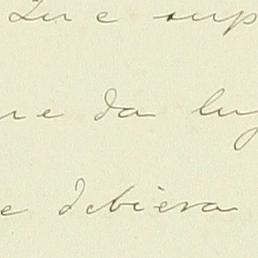 Que sup
re da lug
e debiera